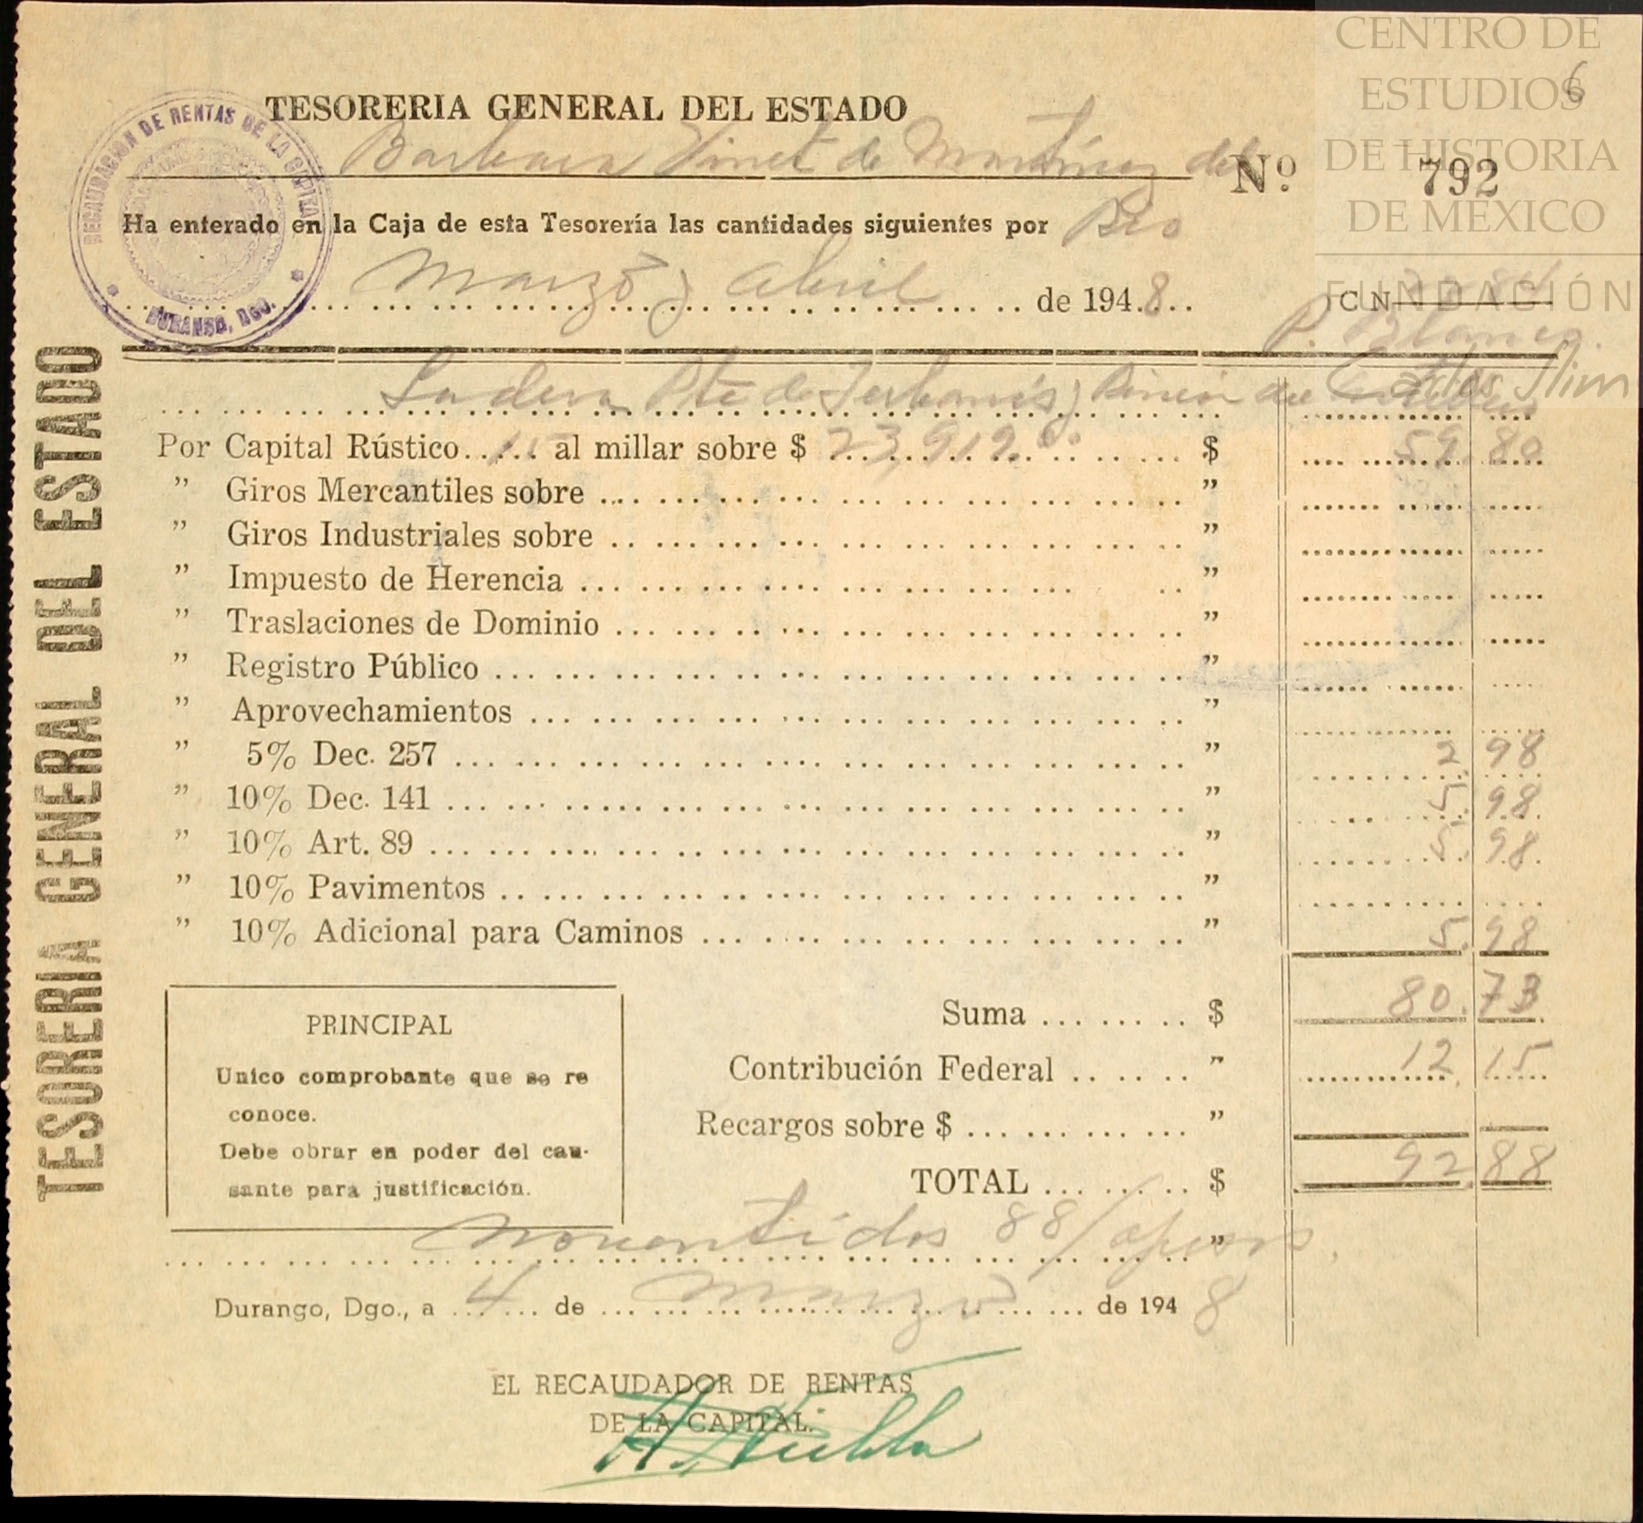 CENTRO DE
ESTUDIOS
DE HISTORIA
DE MEXICO
FUNDACIÓN
Carlos Slim
6
RECAUDACION DE RENTAS DE LA CAPITAL
DURANGO, DGO.
TESORERIA GENERAL DEL ESTADO
Barbara Vinet de Martínez del
Nº 792
Ha enterado en la Caja de esta Tesorería las cantidades siguientes por Rio
Marzo y Abril de 1948
CN
P. Blanco.
Ladera Pte de y Rincón de
Por Capital Rústico 15 al millar sobre $ 23,919.00 $ 59.80
" Giros Mercantiles sobre "
" Giros Industriales sobre "
" Impuesto de Herencia "
" Traslaciones de Dominio "
" Registro Público "
" Aprovechamientos "
" 5% Dec. 257 " 2.98
" 10% Dec. 141 " 5.98
" 10% Art. 89 " 5.98
" 10% Pavimentos "
" 10% Adicional para Caminos " 5.98
Suma $ 80.73
Contribución Federal " 12.15
Recargos sobre $ "
TOTAL $ 92.88
PRINCIPAL
Unico comprobante que se re
conoce.
Debe obrar en poder del cau-
sante para justificación.
Noventidos 88/ pesos "
Durango, Dgo., a 4 de Marzo de 1948
EL RECAUDADOR DE RENTAS
DE LA CAPITAL.
TESORERIA GENERAL DEL ESTADO